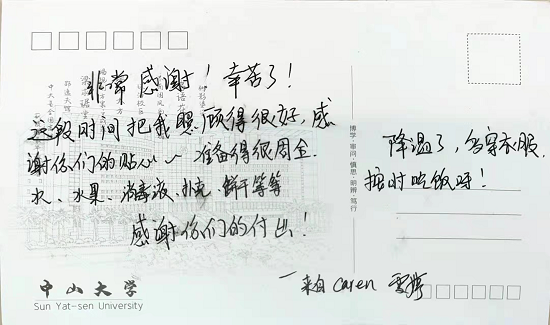 非常感谢！辛苦了！
这段时间把我照顾得很好，感
谢你们的贴心～准备得很周全.
水、水果、消毒液、抽纸、饼干等等
感谢你们的付出！
降温了，多穿衣服，
按时吃饭呀！
一来自 Caren
博学 审问 慎思 明辨 笃行
中山大学
Sun Yat-sen University